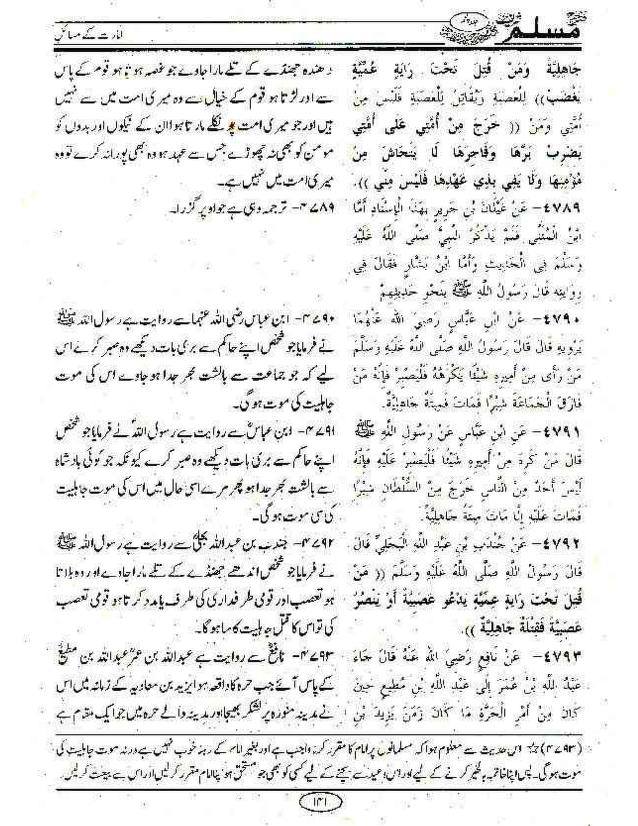 مسلم
امارت کے مسائل
جَاهِلِيَّةٌ وَمَنْ قُتِلَ تَحْتَ رَايَةٍ عُمِّيَّةٍ
يَغْضَبُ لِلْعَصَبَةِ وَيُقَاتِلُ لِلْعَصَبَةِ فَلَيْسَ مِنْ
أُمَّتِي وَمَنْ (( خَرَجَ مِنْ أُمَّتِي عَلَى أُمَّتِي
يَضْرِبُ بَرَّهَا وَفَاجِرَهَا لَا يَتَحَاشَ مِنْ
مُؤْمِنِهَا وَلَا يَفِي بِذِي عَهْدِهَا فَلَيْسَ مِنِّي )).
٤٧٨٩- عَنْ غَيْلَانَ بْنِ جَرِيرٍ بِهَذَا الْإِسْنَادِ أَمَّا
ابْنُ الْمُثَنَّى فَلَمْ يَذْكُرْ النَّبِيَّ صَلَّى اللَّهُ عَلَيْهِ
وَسَلَّمَ فِي الْحَدِيثِ وَأَمَّا ابْنُ بَشَّارٍ فَقَالَ فِي
رِوَايَتِهِ قَالَ رَسُولُ اللَّهِ ﷺ بِنَحْوِ حَدِيثِهِمْ
٤٧٩٠- عَنْ ابْنِ عَبَّاسٍ رَضِيَ اللَّهُ عَنْهُمَا
يَرْوِيهِ قَالَ قَالَ رَسُولُ اللَّهِ صَلَّى اللَّهُ عَلَيْهِ وَسَلَّمَ
مَنْ رَأَى مِنْ أَمِيرِهِ شَيْئًا يَكْرَهُهُ فَلْيَصْبِرْ فَإِنَّهُ مَنْ
فَارَقَ الْجَمَاعَةَ شِبْرًا فَمَاتَ فَمِيتَةٌ جَاهِلِيَّةٌ.
٤٧٩١- عَنْ ابْنِ عَبَّاسٍ عَنْ رَسُولِ اللَّهِ ﷺ
قَالَ مَنْ كَرِهَ مِنْ أَمِيرِهِ شَيْئًا فَلْيَصْبِرْ عَلَيْهِ فَإِنَّهُ
لَيْسَ أَحَدٌ مِنَ النَّاسِ خَرَجَ مِنَ السُّلْطَانِ شِبْرًا
فَمَاتَ عَلَيْهِ إِلَّا مَاتَ مِيتَةً جَاهِلِيَّةً.
٤٧٩٢- عَنْ جُنْدَبِ بْنِ عَبْدِ اللَّهِ الْبَجَلِيِّ قَالَ
قَالَ رَسُولُ اللَّهِ صَلَّى اللَّهُ عَلَيْهِ وَسَلَّمَ (( مَنْ
قُتِلَ تَحْتَ رَايَةٍ عِمِّيَّةٍ يَدْعُو عَصَبِيَّةً أَوْ يَنْصُرُ
عَصَبِيَّةً فَقِتْلَةٌ جَاهِلِيَّةٌ )).
٤٧٩٣- عَنْ نَافِعٍ رَضِيَ اللهُ عَنْهُ قَالَ جَاءَ
عَبْدُ اللَّهِ بْنُ عُمَرَ إِلَى عَبْدِ اللَّهِ بْنِ مُطِيعٍ حِينَ
كَانَ مِنْ أَمْرِ الْحَرَّةِ مَا كَانَ زَمَنَ يَزِيدَ بْنِ
دھندہ جھنڈے کے تلے مارا جاوے جو غصہ ہوتا ہو قوم کے پاس
سے اور لڑتا ہو قوم کے خیال سے وہ میری امت میں سے نہیں
ہیں اور جو میری امت پر نکلے مارتا ہوا ان کے نیکوں اور بدوں کو
مومن کو بھی نہ چھوڑے جس سے عہد ہو وہ بھی پورا نہ کرے تو وہ
میری امت میں نہیں ہے۔
۴۷۸۹- ترجمہ وہی ہے جو اوپر گزرا۔
۴۷۹۰- ابن عباس رضی اللہ عنہما سے روایت ہے رسول اللہ ﷺ
نے فرمایا جو شخص اپنے حاکم سے بری بات دیکھے وہ صبر کرے اس
لیے کہ جو جماعت سے بالشت بھر جدا ہو جاوے اس کی موت
جاہلیت کی موت ہوگی۔
۴۷۹۱- ابن عباسؓ سے روایت ہے رسول اللہؐ نے فرمایا جو شخص
اپنے حاکم سے بری بات دیکھے وہ صبر کرے کیونکہ جو کوئی بادشاہ
سے بالشت بھر جدا ہو پھر مرے اسی حال میں اس کی موت جاہلیت
کی سی موت ہوگی۔
۴۷۹۲- جندب بن عبداللہ بجلیؓ سے روایت ہے رسول اللہ ﷺ
نے فرمایا جو شخص اندھے جھنڈے کے تلے مارا جاوے اور وہ بلاتا
ہو تعصب اور قومی طرفداری کی طرف یا مدد کرتا ہو قومی تعصب
کی تو اس کا قتل جاہلیت کا سا ہوگا۔
۴۷۹۳- نافعؓ سے روایت ہے عبداللہ بن عمرؓ عبداللہ بن مطیعؓ
کے پاس آئے جب حرہ کا واقعہ ہوا یزید بن معاویہ کے زمانہ میں اس
نے مدینہ منورہ پر لشکر بھیجا اور مدینہ والے حرہ میں جو ایک مقام ہے
(۴۷۹۳) ☆ اس حدیث سے معلوم ہوا کہ مسلمانوں پر امام کا مقرر کرنا واجب ہے اور بغیر امام کے رہنا خوب نہیں ہے ورنہ موت جاہلیت کی
موت ہوگی۔ پس اپنا خاتمہ بالخیر کرنے کے لیے اور اس وعید سے بچنے کے لیے کسی کو بھی جو مستحق ہو اپنا امام مقرر کر لیں اور اس سے بیعت کر لیں۔
۱۴۱